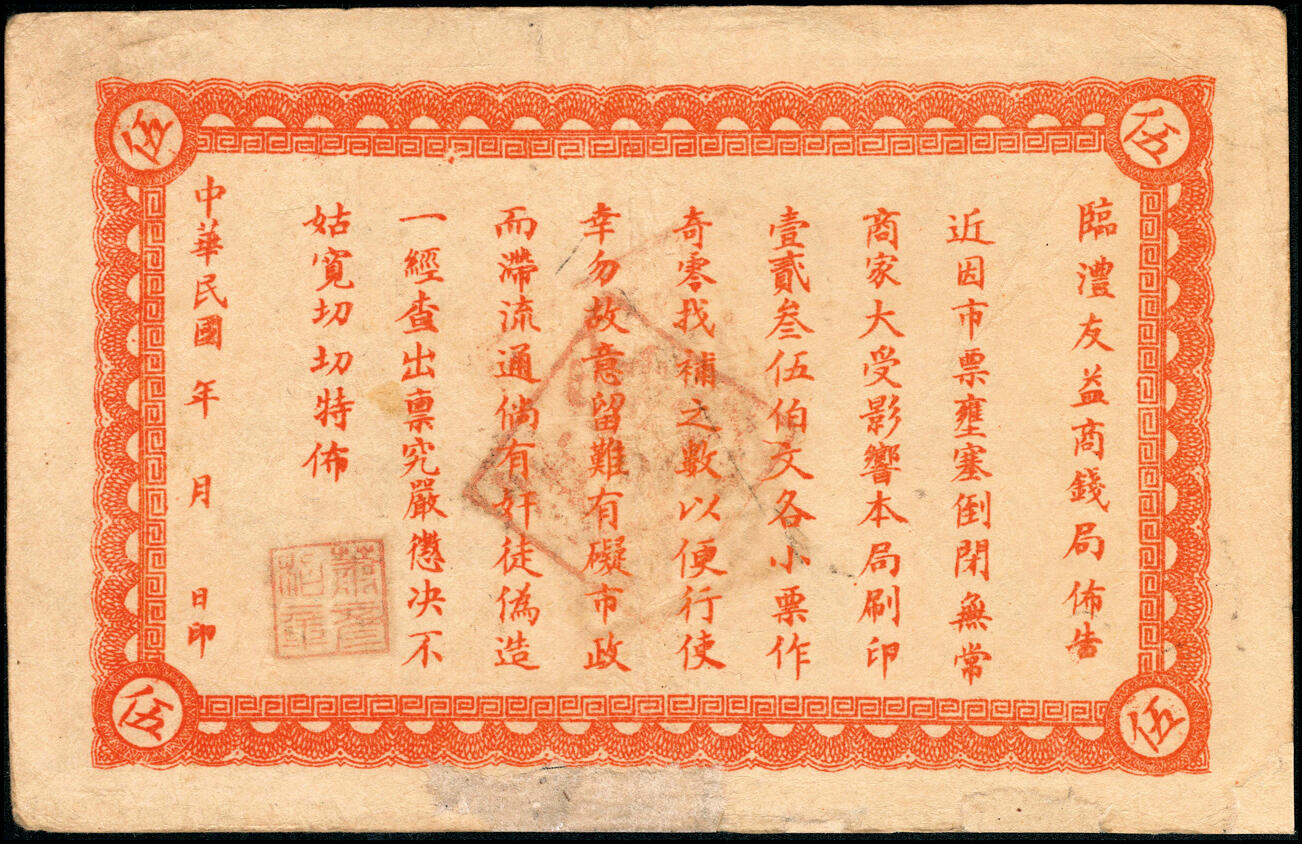 臨澧友益商錢局佈告
近因市票壅塞倒閉無常
商家大受影響本局刷印
壹貳叁伍伯文各小票作
奇零找補之數以便行使
幸勿故意留難有礙市政
而滯流通倘有奸徒偽造
一經查出禀究嚴懲决不
姑寬切切特佈
中華民國 年 月 日印
伍
伍
伍
伍